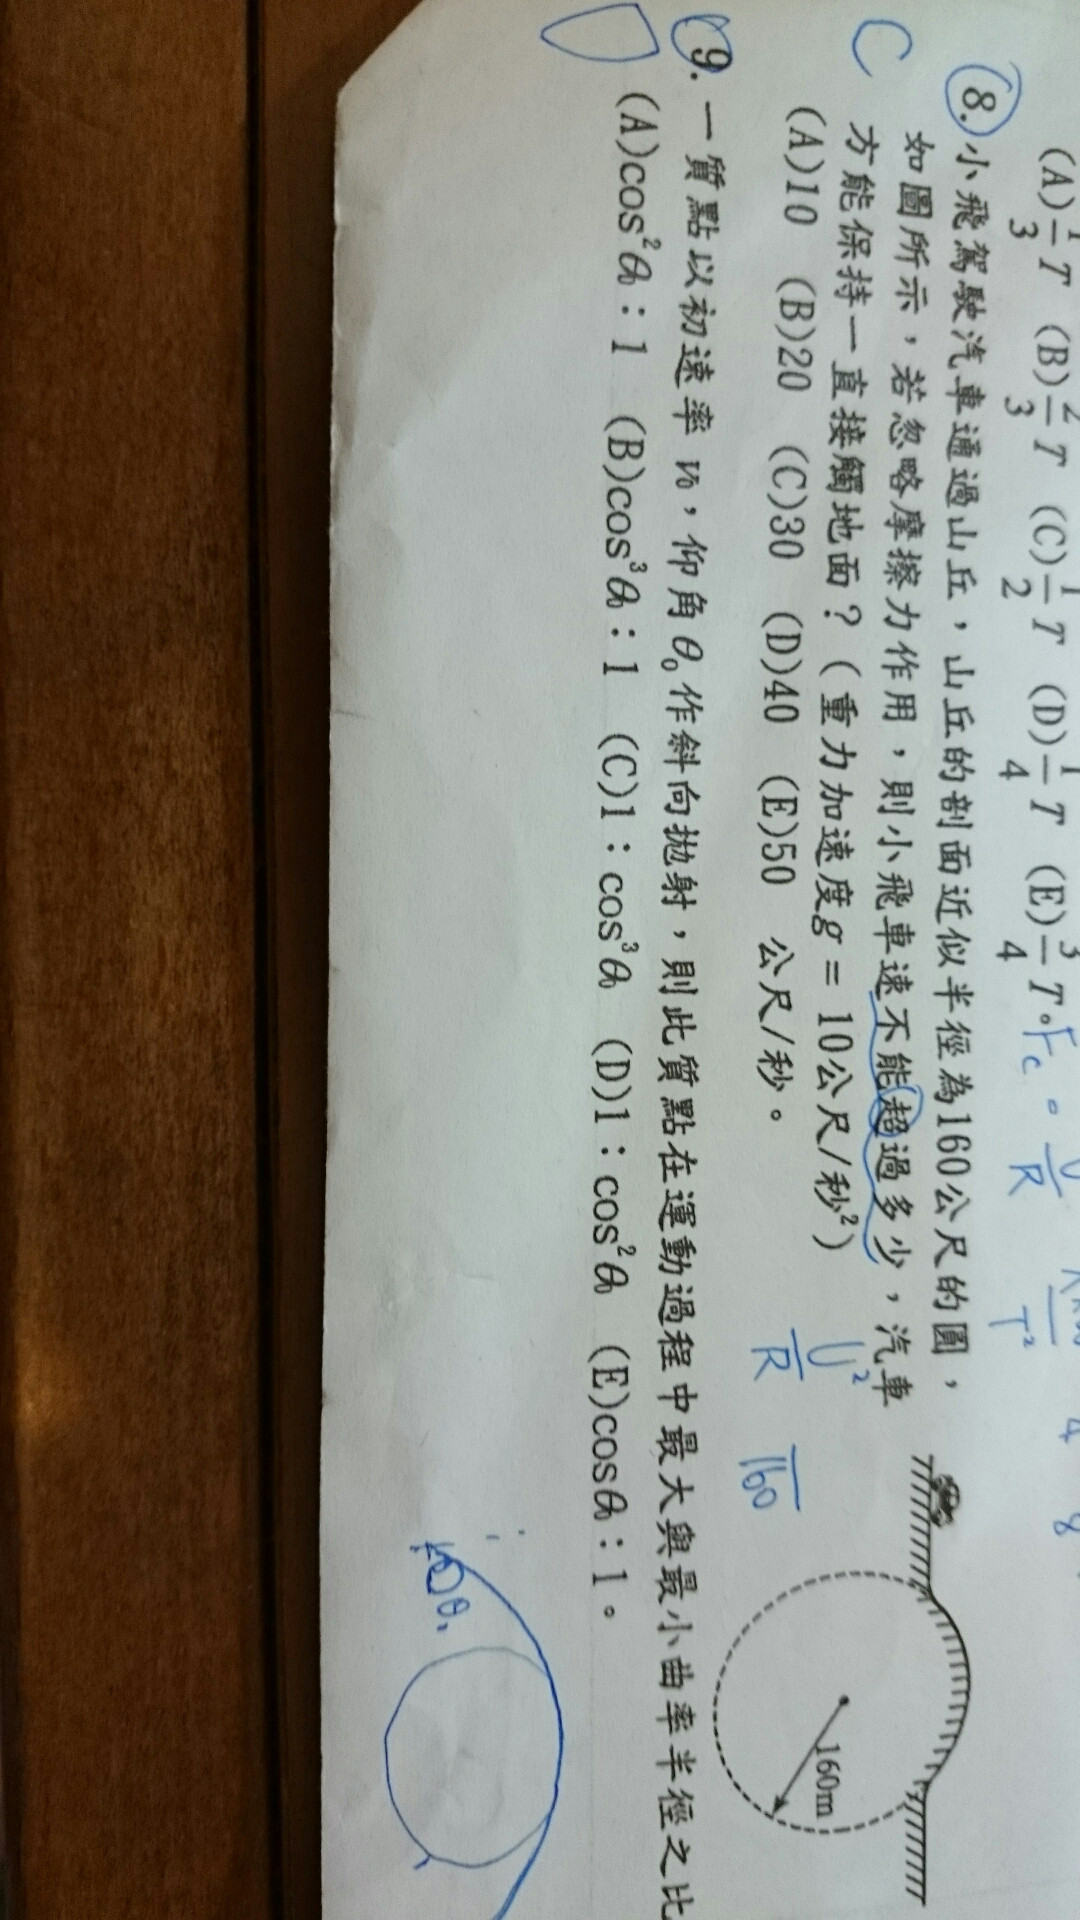 (A)1/3 T (B)2/3 T (C)1/2 T (D)1/4 T (E)3/4 T。
Fc = R T²
8. 小飛駕駛汽車通過山丘，山丘的剖面近似半徑為160公尺的圓，
如圖所示，若忽略摩擦力作用，則小飛車速不能超過多少，汽車
C
方能保持一直接觸地面？(重力加速度g = 10公尺/秒²)
(A)10 (B)20 (C)30 (D)40 (E)50 公尺/秒。
U²/R
160
160m
9. 一質點以初速率 v₀，仰角θ₀作斜向拋射，則此質點在運動過程中最大與最小曲率半徑之比
(A)cos²θ₀：1 (B)cos³θ₀：1 (C)1：cos³θ₀ (D)1：cos²θ₀ (E)cosθ₀：1。